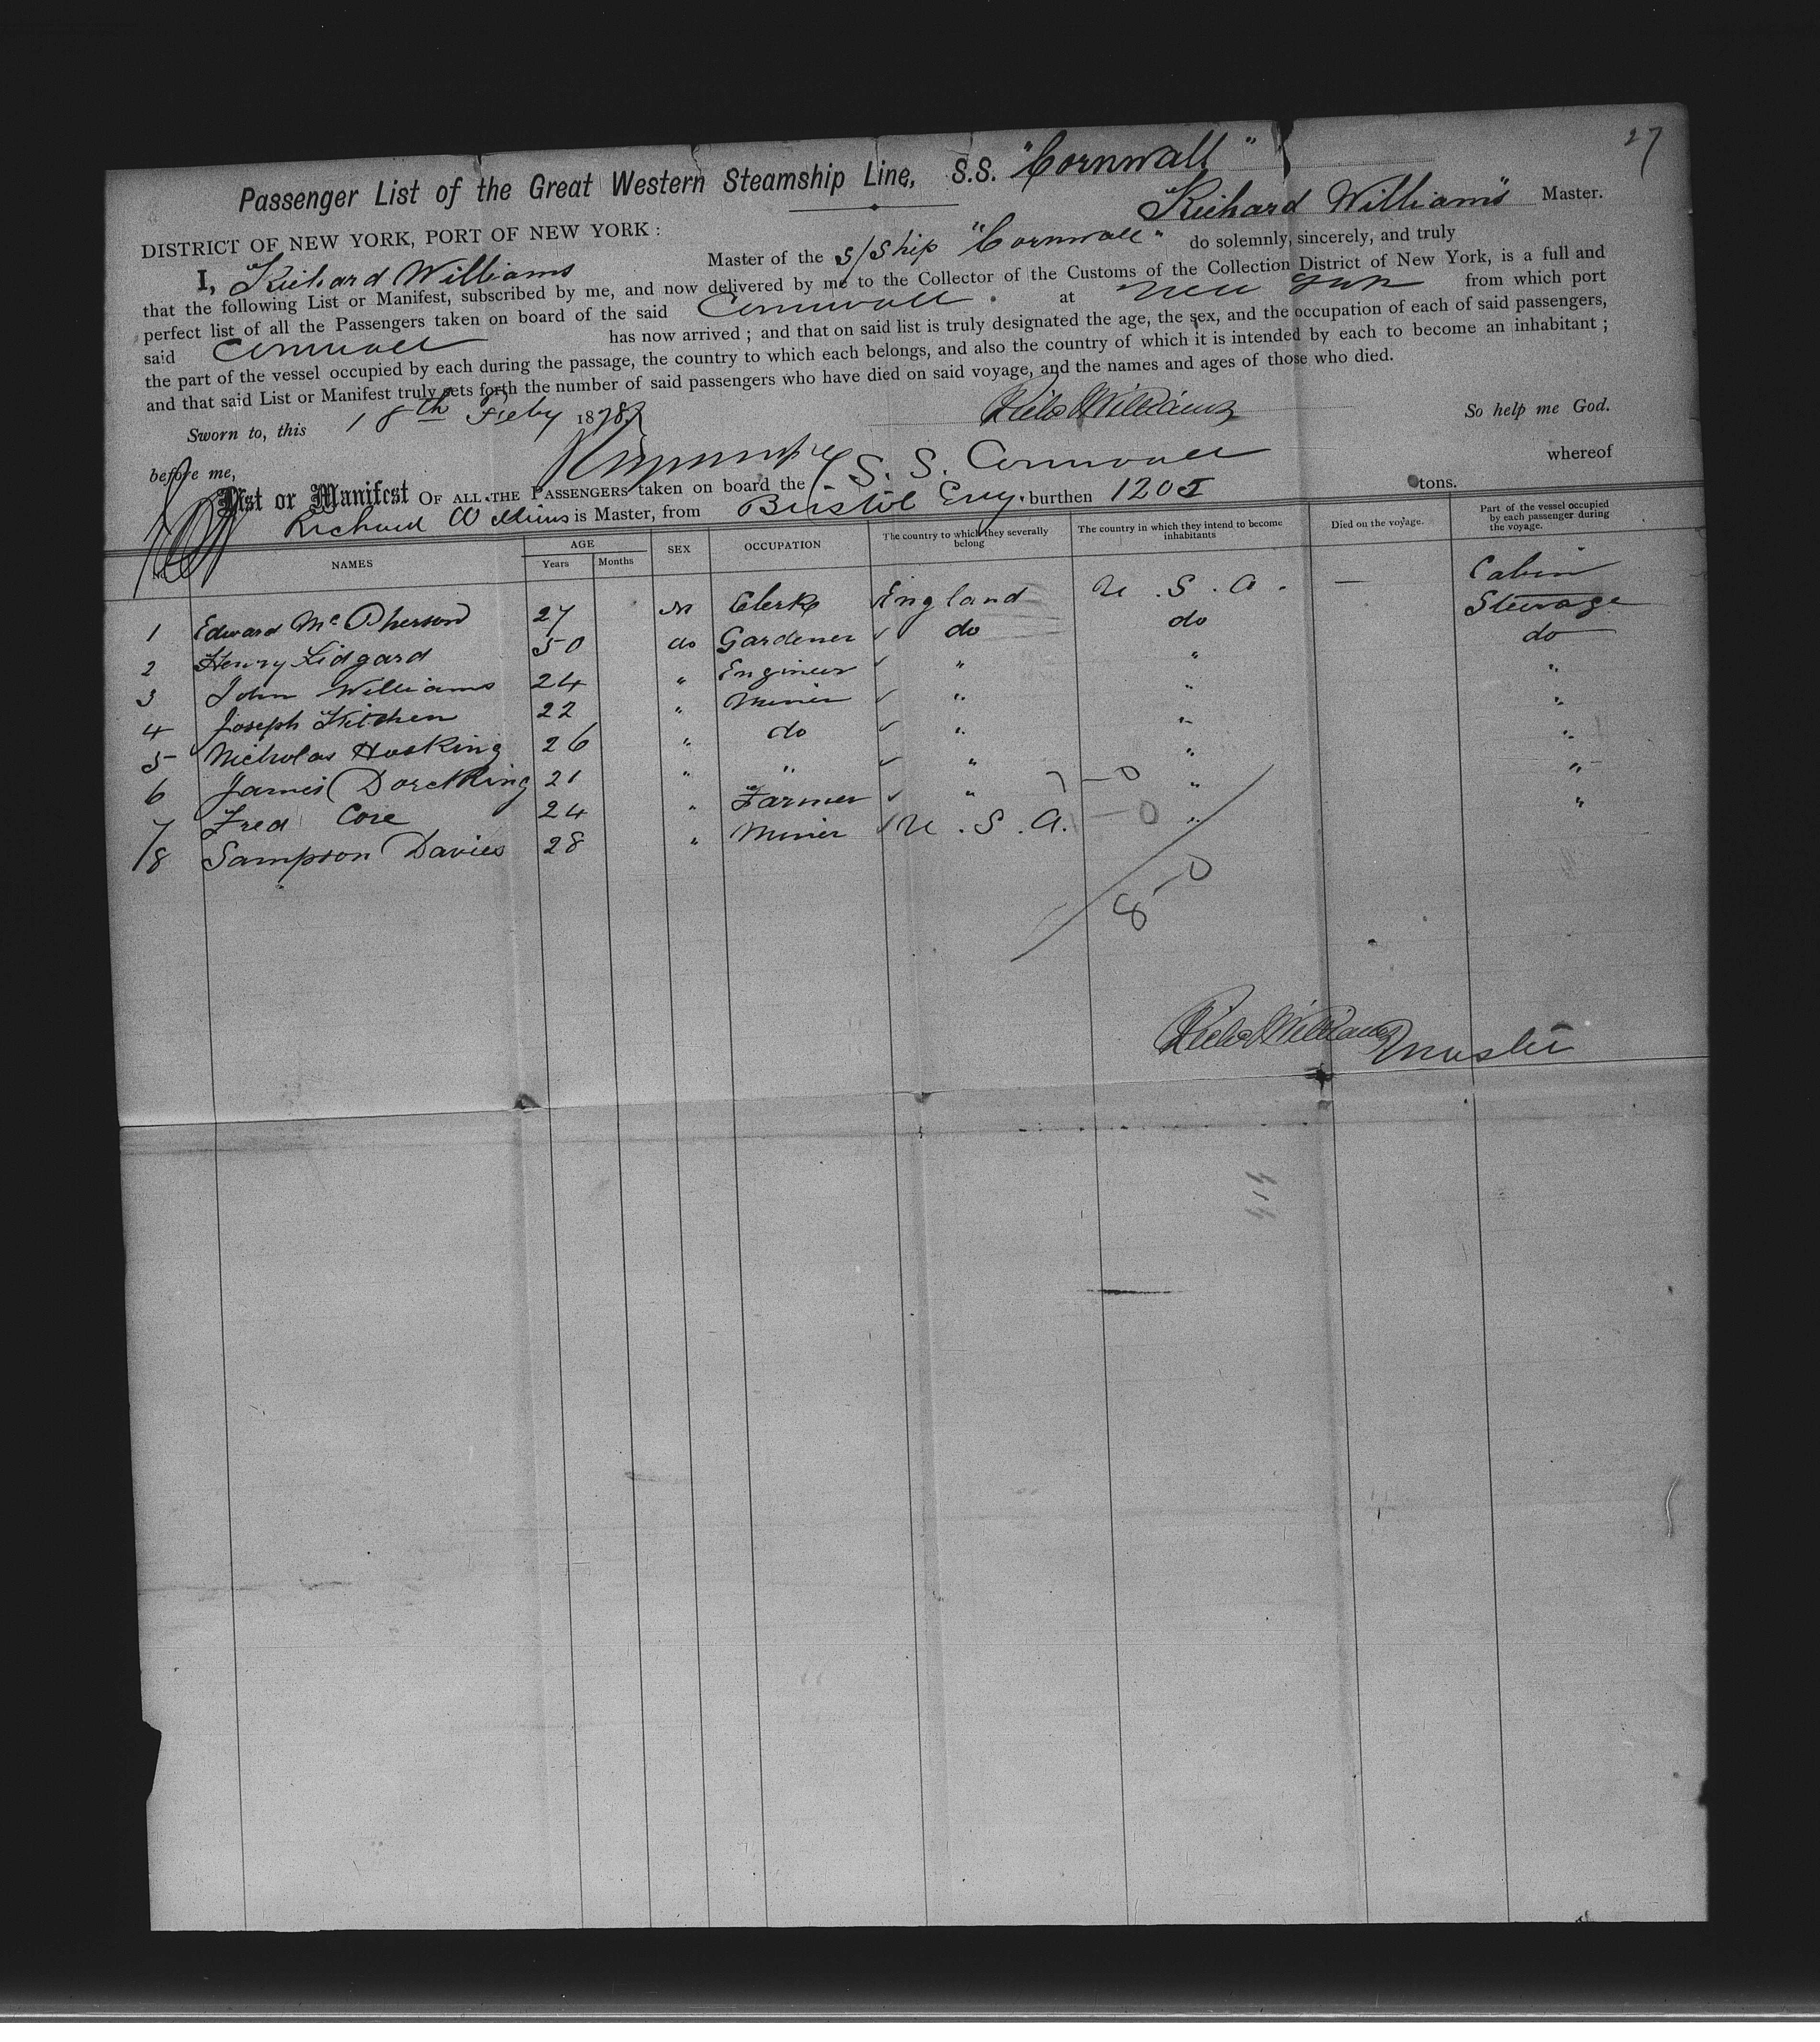 27
Passenger List of the Great Western Steamship Line, S.S. "Cornwall"
Richard Williams Master.
DISTRICT OF NEW YORK, PORT OF NEW YORK :
I, Richard Williams Master of the S/Ship "Cornwall" do solemnly, sincerely, and truly
that the following List or Manifest, subscribed by me, and now delivered by me to the Collector of the Customs of the Collection District of New York, is a full and
perfect list of all the Passengers taken on board of the said Cornwall at New York from which port
said Cornwall has now arrived ; and that on said list is truly designated the age, the sex, and the occupation of each of said passengers,
the part of the vessel occupied by each during the passage, the country to which each belongs, and also the country of which it is intended by each to become an inhabitant ;
and that said List or Manifest truly sets forth the number of said passengers who have died on said voyage, and the names and ages of those who died.
Sworn to, this 18th Feby 188 Richd Williams So help me God.
before me,
List or Manifest OF ALL THE PASSENGERS taken on board the S. S. Cornwall whereof
Richard Williams is Master, from Bristol Eng. burthen 1205 tons.
No. NAMES AGE Years Months SEX OCCUPATION The country to which they severally belong The country in which they intend to become inhabitants Died on the voyage. Part of the vessel occupied by each passenger during the voyage.
1 Edward McPherson 27 M Clerk England U.S.A. — Cabin
2 Henry Lidgard 50 do Gardener do do Steerage
3 John Williams 24 " Engineer " " do
4 Joseph Kitchen 22 " Miner " " "
5 Nicholas Hosking 26 " do " " "
6 James Dorcking 21 " " " " "
7 Fred Core 24 " Farmer " " "
8 Sampson Davies 28 " Miner U.S.A. " "
7 — 0
— 0
8 — 0
Richd Williams Master